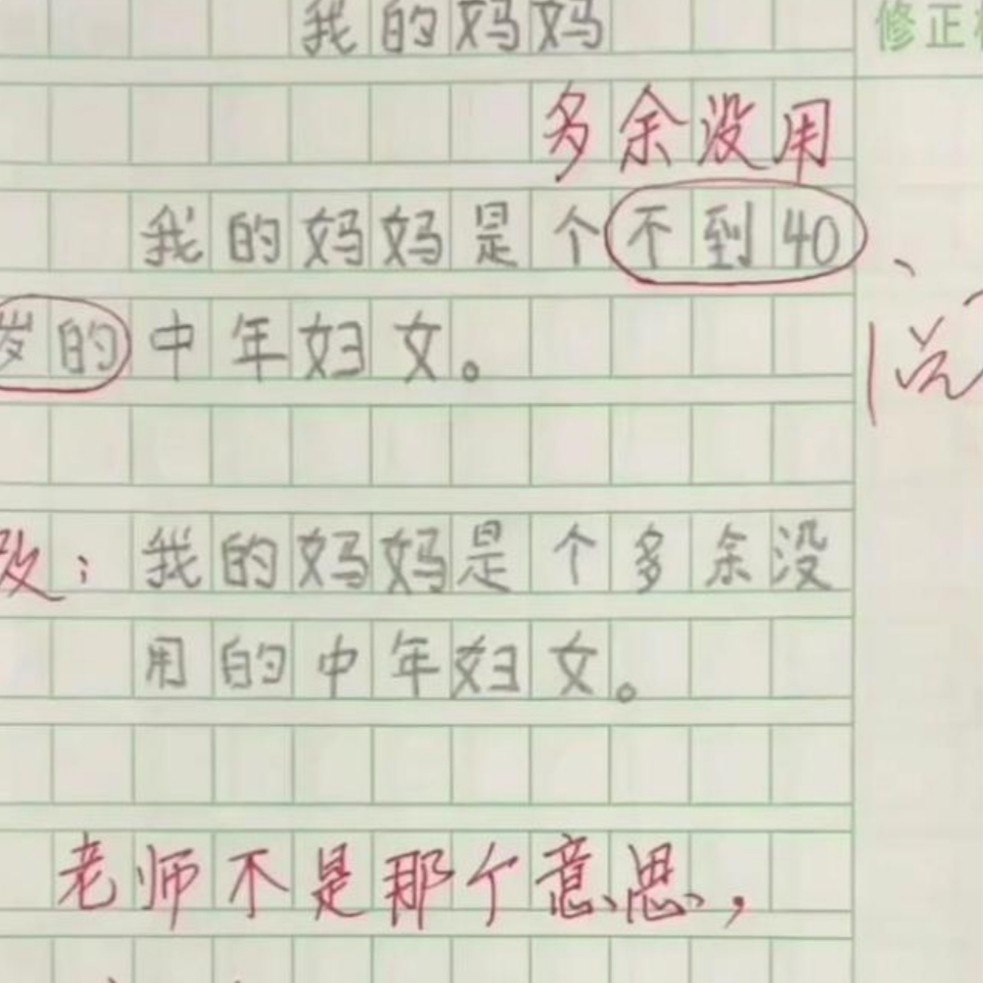 我的妈妈
修正
多余没用
我的妈妈是个不到40
岁的中年妇女。
说
改：我的妈妈是个多余没
用的中年妇女。
老师不是那个意思，